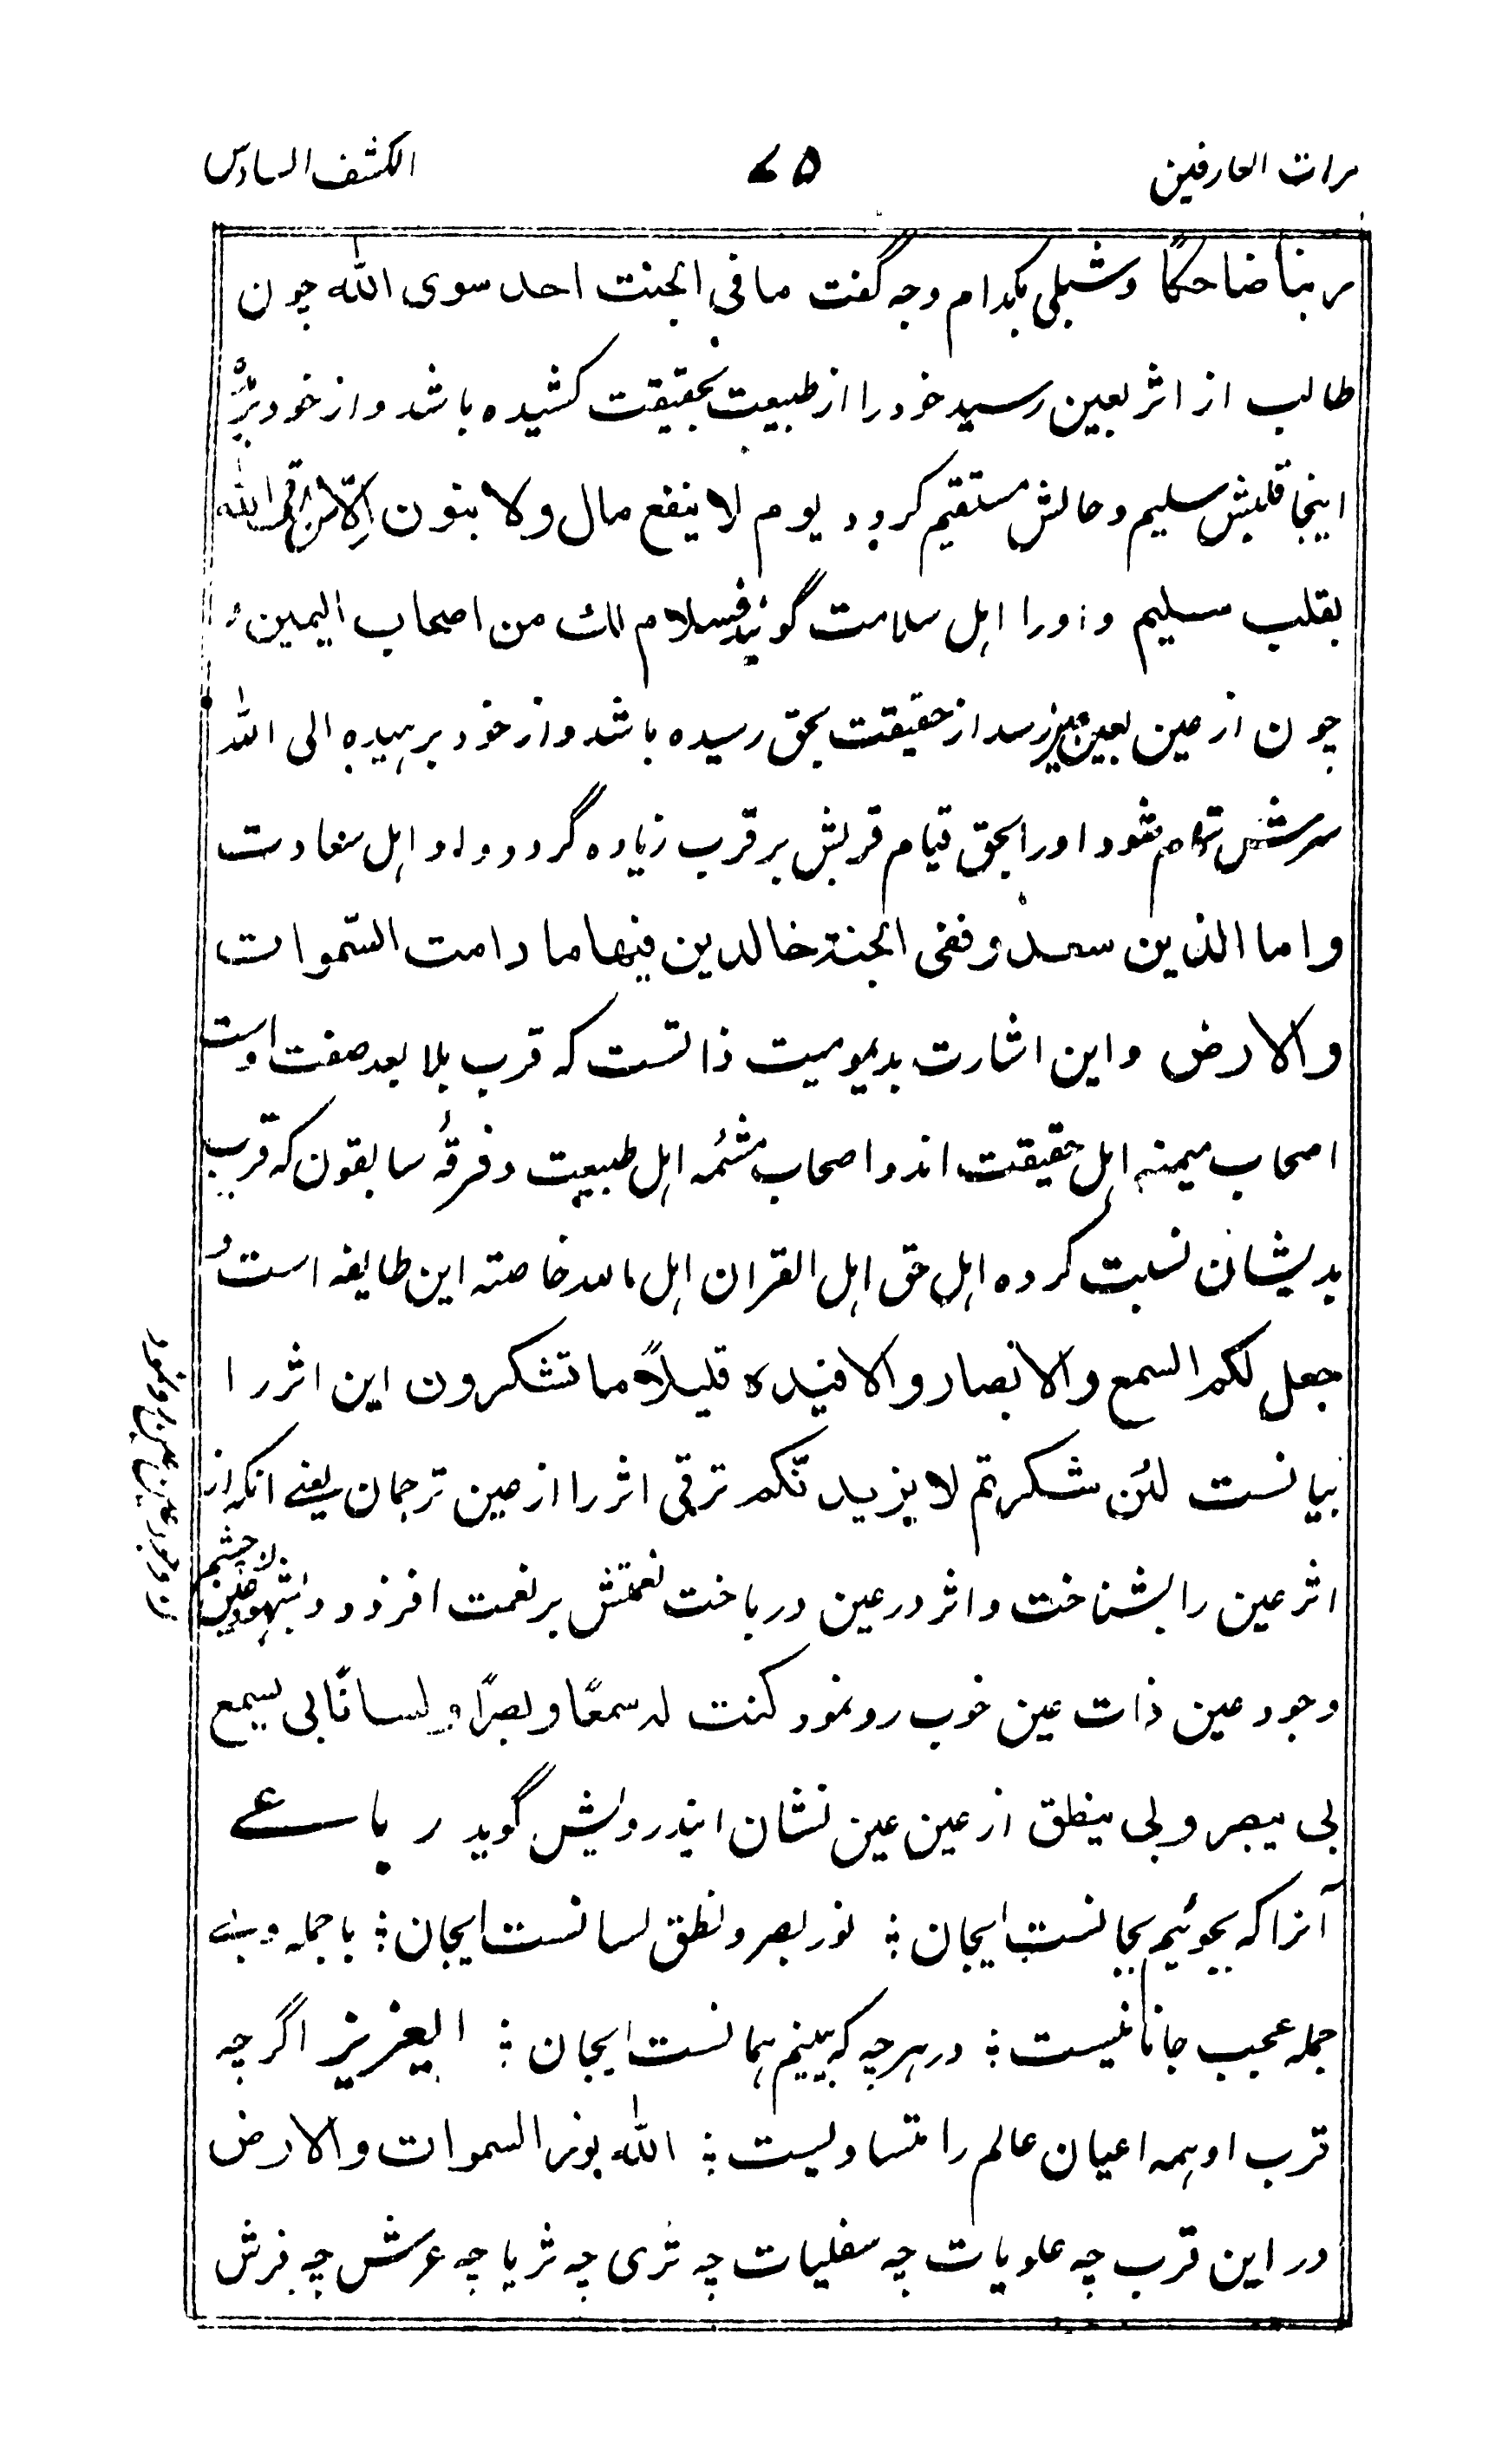 مرات العارفین ۷۵ الکشف السادس
ربنا ضاحکا و شبلی بکدام وجه گفت ما فی الجنت احد سوی الله چون
طالب از اثر بعین رسید خود را از طبیعت بحقیقت کشیده باشد و از خود
اینجا قلبش سلیم و حالش مستقیم گردد یوم لا ینفع مال ولا بنون الّا من اتی الله
بقلب سلیم و اورا اهل سلامت گویند فسلام لك من اصحاب الیمین و
چون از عین بعین رسد از حقیقت بحق رسیده باشد و از خود برهیده الی الله
سیرش تمام شود اورا بحق قیام قربش بر قرب زیاده گردد و او اهل سعادت
واما الذین سعدو ففی الجنة خالدین فیها ما دامت السّموات
والارض و این اشارت بدیمومیت ذاتست که قرب بلا بعد صفت اوست
اصحاب میمنه اهل حقیقت اند و اصحاب مشئمه اهل طبیعت و فرقهٔ سابقون که قرب
بدیشان نسبت کرده اهل حق اهل القران اهل الله خاصته این طایفه است و
جعل لکم السمع والابصار والافیده قلیلاً ما تشکرون این اثر را
بیانست لئن شکرتم لا یزیدنّکم ترقی اثر را از عین ترجمان یعنے انکه از
اثر عین را بشناخت و اثر در عین درباخت نعمتش بر نعمت افزود و بشهود عین
وجود عین ذات عین خوب رو نمود کنت له سمعًا وبصرًا ولسانًا بی یسمع
بی یبصر و بی ینطق از عین عین نشان ایندرویش گوید رباعے
آنرا که بجوئیم بجانست ایجان ؛ نور بصر و نطق لسانست ایجان ؛ با جمله و بے
جمله عجب جانانیست ؛ در هر چه که بینیم همانست ایجان ؛ ایعزیز اگرچه
قرب او همه اعیان عالم را متساویست ؛ الله نور السموات والارض
در این قرب چه علویات چه سفلیات چه ثری چه ثریا چه عرش چه فرش